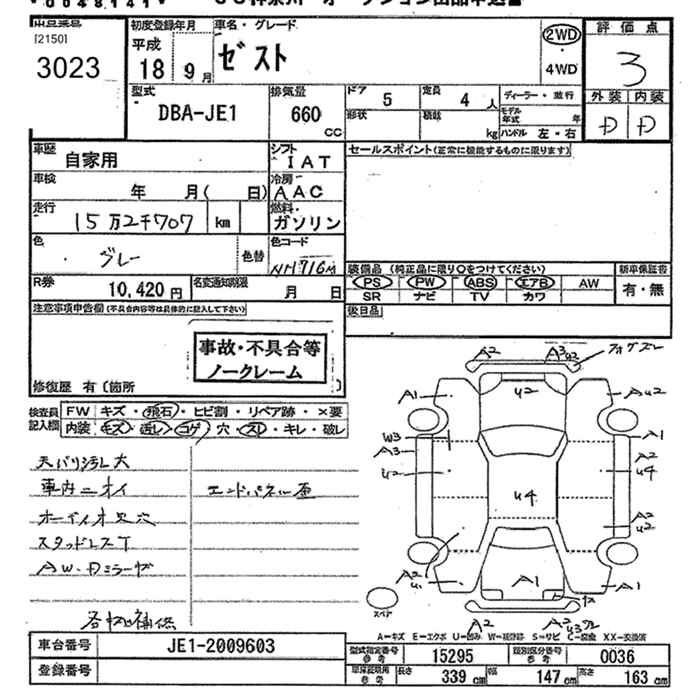 *0048141*
[2150]
3023
初度登録年月
平成
18年9月
車名・グレード
ゼスト
2WD
・
4WD
評価点
3
外装 内装
D D
型式
DBA-JE1
排気量
660
CC
ドア 5
定員 4人
ディーラー・並行
形状
積載 kg
モデル年式 年
ハンドル 左・右
車歴 自家用
シフト IAT
セールスポイント(正常に機能するものに限ります)
車検 年 月( 日)
冷房 AAC
走行 15万2千707 km
燃料 ガソリン
色 グレー
色替
色コード NH716M
装備品 (純正品に限り○をつけてください)
新車保証書
PS PW ABS エアB AW
有・無
SR ナビ TV カワ
R券 10,420円
名変通知期限 月 日
後日品
注意事項申告欄(不具合内容等は具体的に記入して下さい)
事故・不具合等
ノークレーム
修復歴 有〔箇所
検査員記入欄
FW キズ・飛石・ヒビ割・リペア跡・×要
内装 キズ・汚レ・コゲ・穴・スレ・キレ・破レ
天バリシミ大
車内ニオイ エンドパネル歪
オーディオ欠穴
スタッドレスT
AW・Dミラーキズ
各キズ凹補修
A2 A3 U2 フォグズレ
A1 U2 A U2
W3 A1
A3 A2
U2 U4 U4
A2
U2
A2
U1 A1 A1
スペア A2 A2
A−キズ E−エクボ U−凹み W−補修跡 S−サビ C−腐食 XX−交換済
車台番号 JE1-2009603
型式指定番号 参考 15295
類別区分番号 参考 0036
登録番号
車検証期用 参考 長さ 339 cm 幅 147 cm 高さ 163 cm